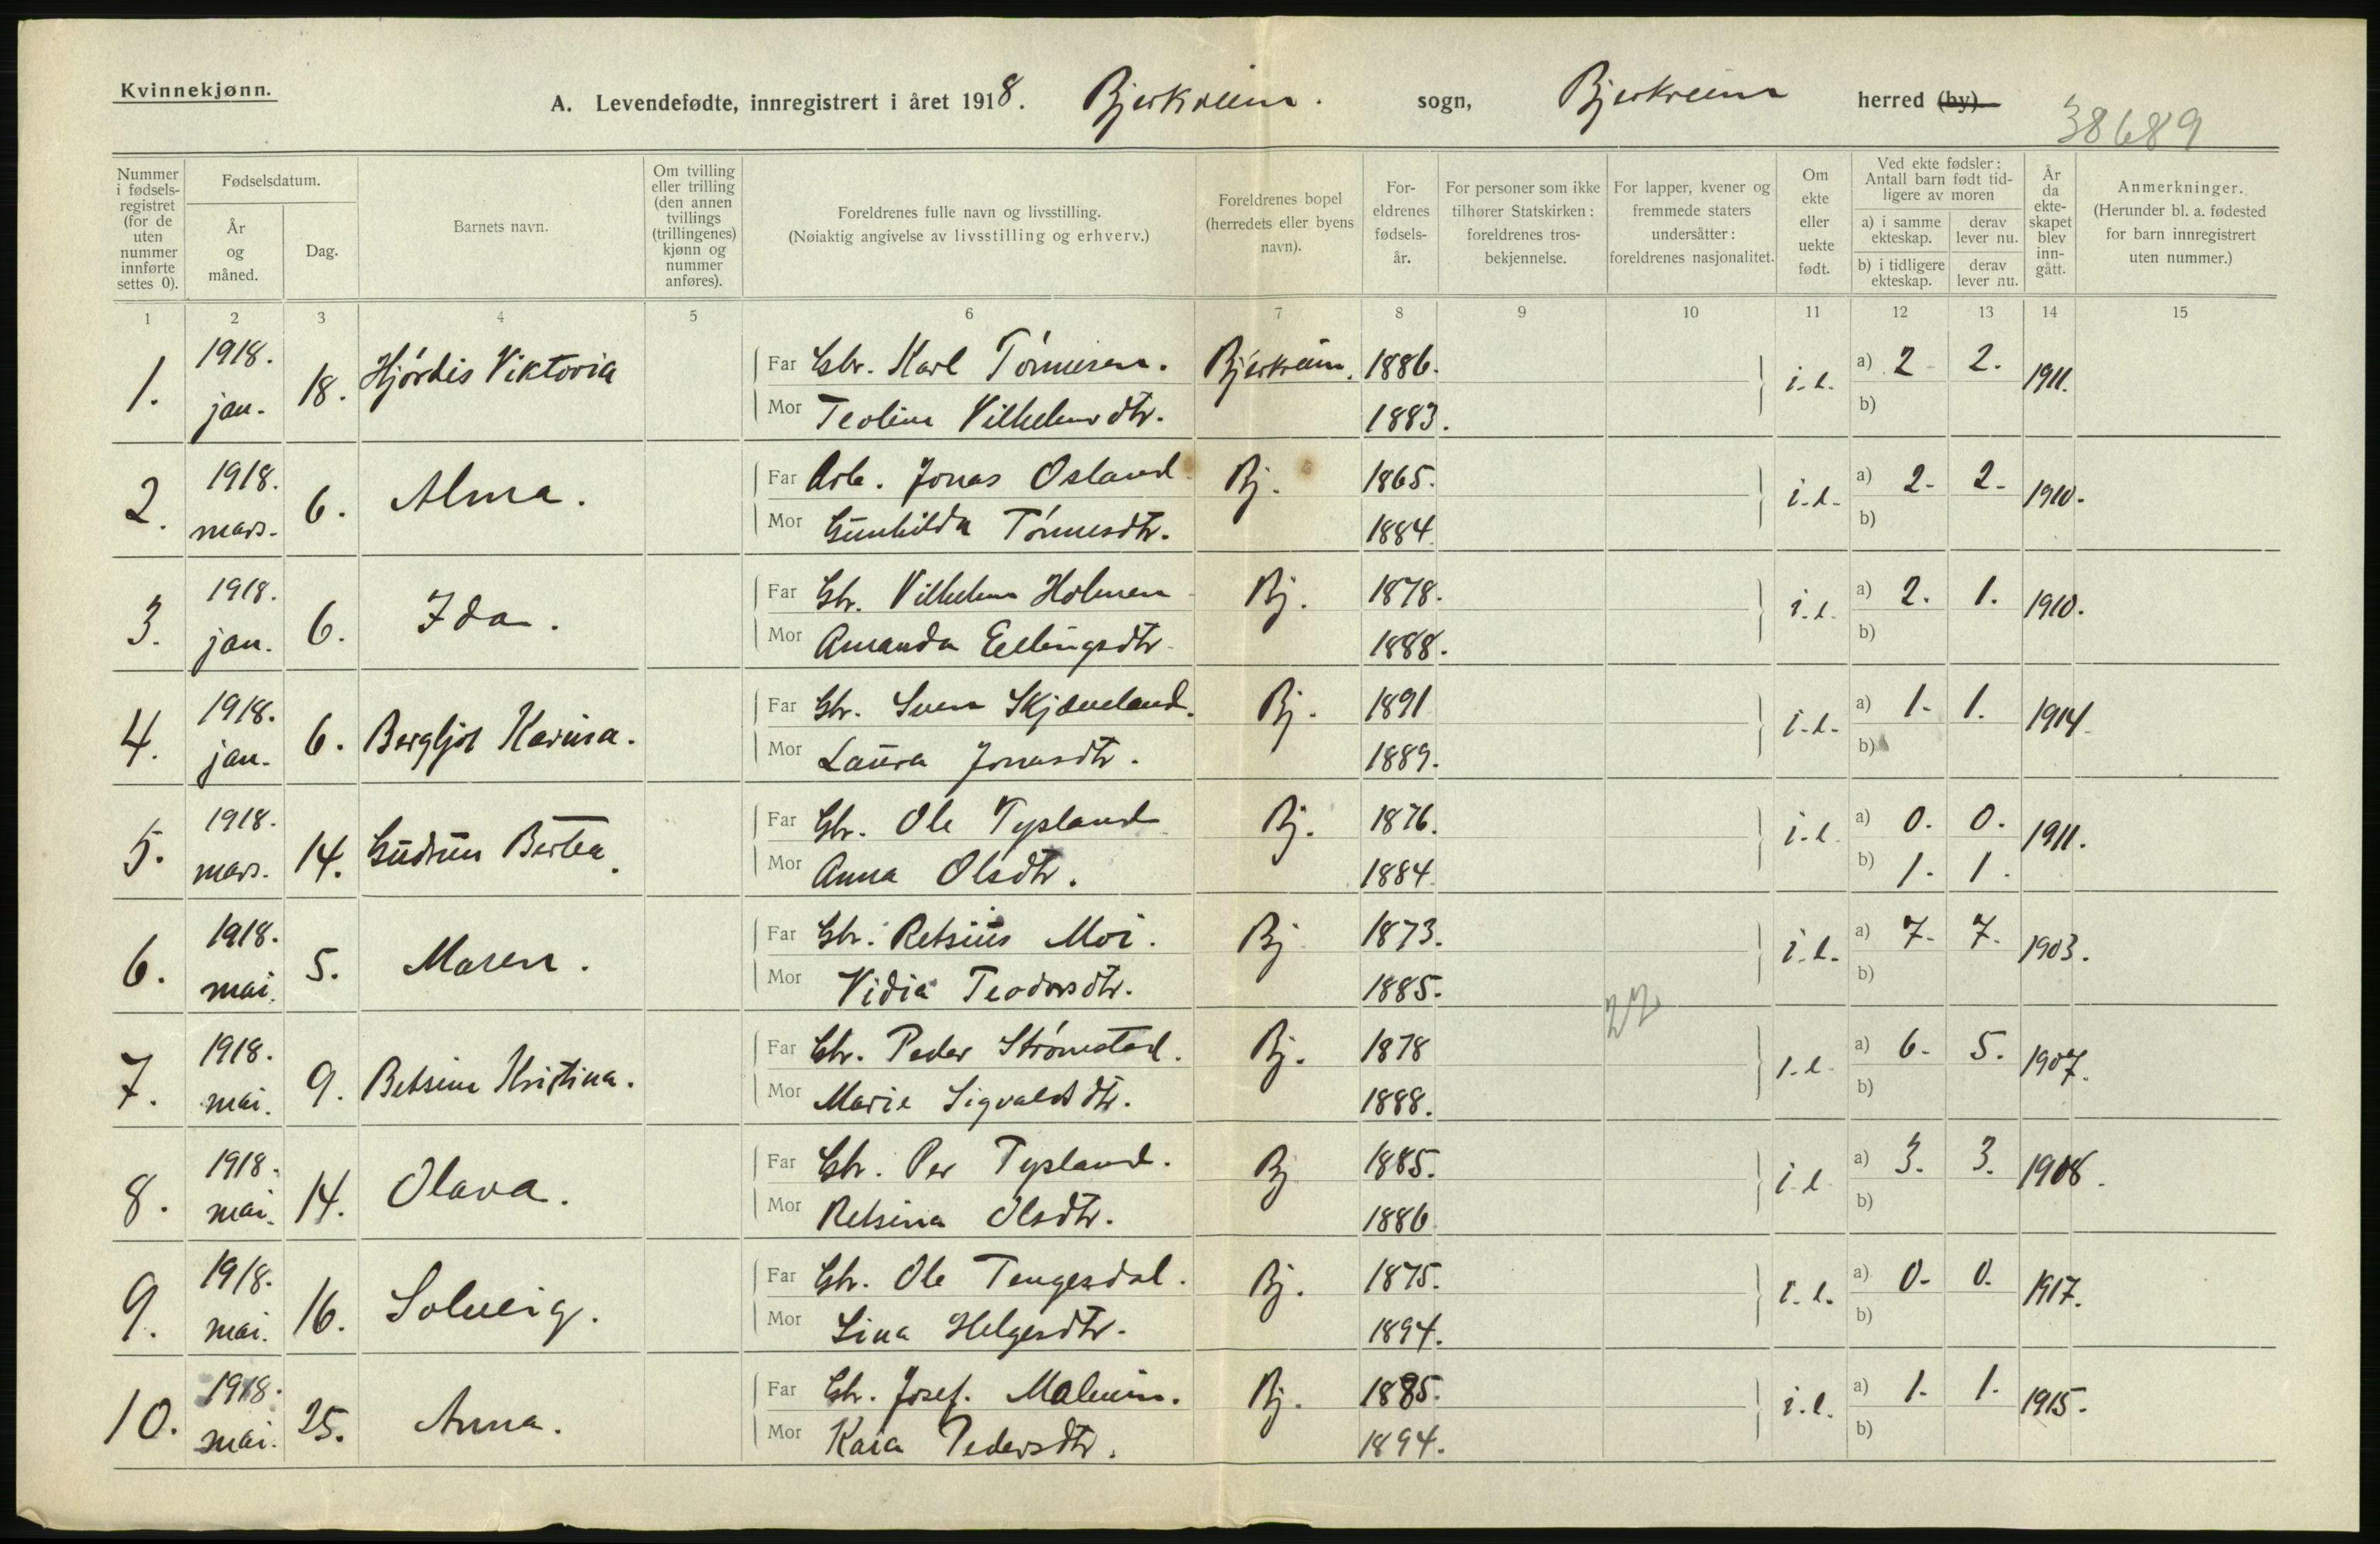 Kvinnekjønn.
A. Levendefødte, innregistrert i året 1918. Bjerkreim. sogn, Bjerkreim herred (by).
38689
Nummer i fødsels-registret (for de uten nummer innførte settes 0).
Fødselsdatum.
År og måned.
Dag.
Barnets navn.
Om tvilling eller trilling (den annen tvillings (trillingenes) kjønn og nummer anføres).
Foreldrenes fulle navn og livsstilling.
(Nøiaktig angivelse av livsstilling og erhverv.)
Foreldrenes bopel (herredets eller byens navn).
For-eldrenes fødsels-år.
For personer som ikke tilhører Statskirken: foreldrenes tros-bekjennelse.
For lapper, kvener og fremmede staters undersåtter: foreldrenes nasjonalitet.
Om ekte eller uekte født.
Ved ekte fødsler: Antall barn født tid-ligere av moren
a) i samme ekteskap.
derav lever nu.
b) i tidligere ekteskap.
derav lever nu.
År da ekte-skapet blev inn-gått.
Anmerkninger.
(Herunder bl. a. fødested for barn innregistrert uten nummer.)
1 2 3 4 5 6 7 8 9 10 11 12 13 14 15
1. 1918. jan. 18. Hjórdis Viktoria Far Gbr. Karl Tónnesen. Bjerkreim. 1886. i.e. a) 2 2. 1911.
Mor Teolina Vilhelmsdtr. 1883. b)
2. 1918. mars. 6. Alma. Far Arb. Jonas Osland Bj. 1865. i.e. a) 2. 2. 1910.
Mor Gunhilda Tónnesdtr. 1884. b)
3. 1918. jan. 6. Ida. Far Gbr. Vilhelm Holmen Bj. 1878. i.e. a) 2. 1. 1910.
Mor Amanda Ellingsdtr. 1888. b)
4. 1918. jan. 6. Bergljot Karina. Far Gbr. Sven Skjæveland. Bj. 1891 i.e. a) 1. 1. 1914.
Mor Laura Jonasdtr. 1889. b)
5. 1918. mars. 14. Gudrun Bertea. Far Gbr. Ole Tysland Bj. 1876. i.e. a) 0. 0. 1911.
Mor Anna Olsdtr. 1884. b) 1. 1.
6. 1918. mai. 5. Maren. Far Gbr. Retsius Moi. Bj 1873. i.e. a) 7. 7. 1903.
Mor Vidia Teodorsdtr. 1885. b)
22
7. 1918. mai. 9. Betsine Kristina. Far Gbr. Peder Strómstad. Bj. 1878 i.e. a) 6. 5. 1907.
Mor Marie Sigvaldsdtr. 1888. b)
8. 1918. mai. 14. Olava. Far Gbr. Per Tysland. Bj 1885. i.e a) 3. 3. 1908.
Mor Retsina Olsdtr. 1886 b)
9. 1918. mai. 16. Solveig. Far Gbr. Ole Tengesdal. Bj. 1875. i.e. a) 0. 0. 1917.
Mor Lina Helgesdtr. 1894. b)
10. 1918. mai. 25. Anna. Far Gbr. Josef. Malmin. Bj. 1885. i.e. a) 1. 1. 1915.
Mor Kaia Pedersdtr. 1894. b)